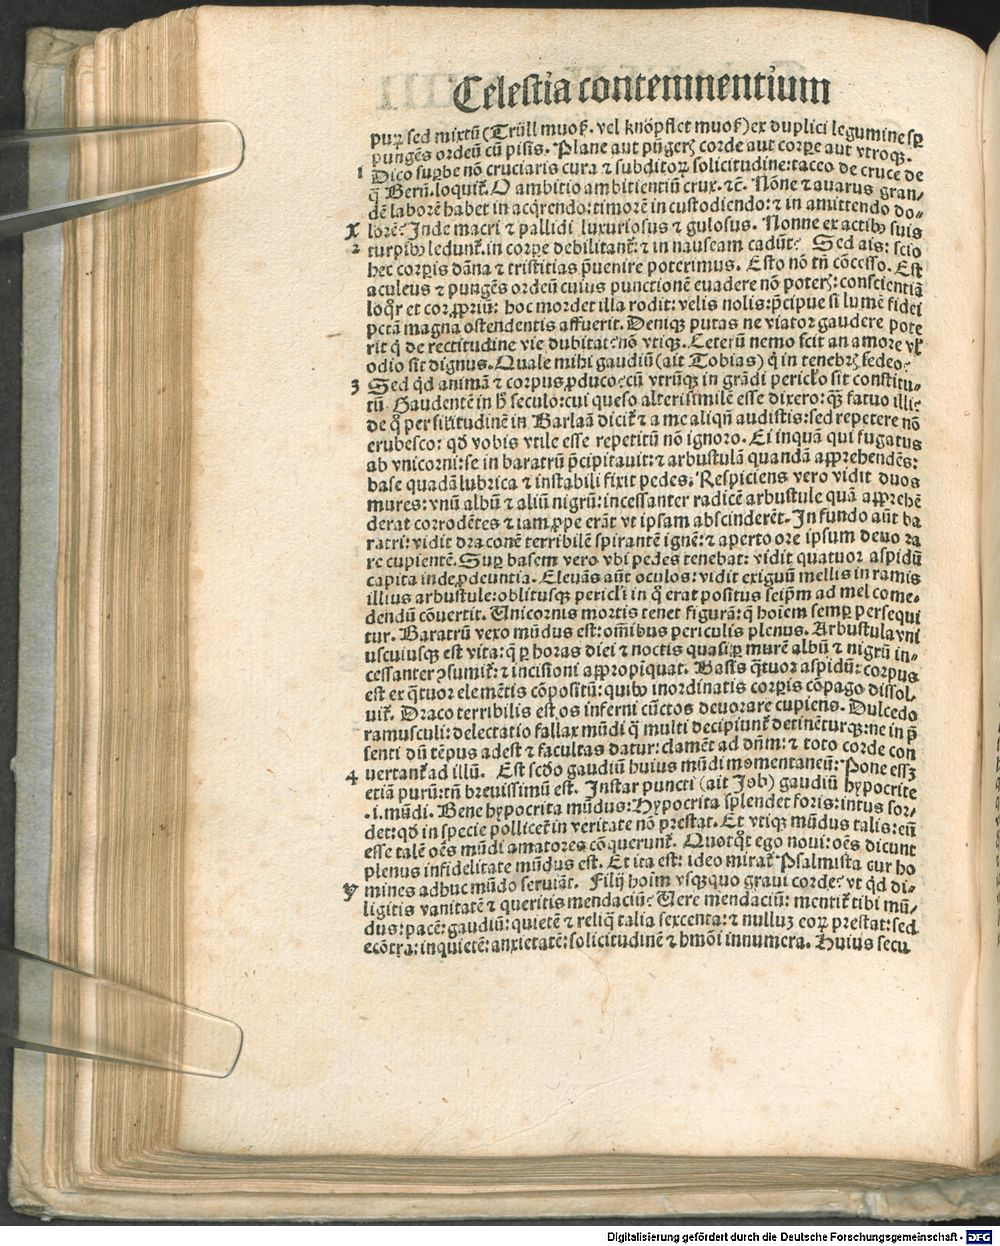 Celestia contemnentium
puꝝ sed mixtū (Trüll muoß. vel knöpflet muoß) ex duplici legumine sꝑ
pungēs ordeū cū pisis. Plane aut pūgeꝫ corde aut corꝑe aut vtroqꝫ.
1 Dico suꝑbe nō cruciaris cura ⁊ subditoꝝ solicitudine: taceo de cruce de
q̄ Berñ. loquiť. O ambitio ambitientiū crux. ⁊c̄. Nōne ⁊ auarus gran-
dē laborē habet in acq̄rendo: timorē in custodiendo: ⁊ in amittendo do-
X lorē? Inde macri ⁊ pallidi luxuriosus ⁊ gulosus. Nonne ex actibꝰ suis
2 turpibꝰ leduntˀ. in corꝑe debilitantˀ: ⁊ in nauseam cadūt? Sed ais: scio
hec corꝑis dāna ⁊ tristitias p̄uenire poterimus. Esto nō tñ cōcesso. Est
aculeus ⁊ pungēs ordeū cuius punctionē euadere nō poteꝫ: conscientiā
loq̊r et cor ꝓpriū: hoc mordet illa rodit: velis nolis: p̄cipue si lumē fidei
pctā magna ostendentis affuerit. Deniqꝫ putas ne viator gaudere pote
rit q̄ de rectitudine vie dubitat? nō vtiqꝫ. Ceterū nemo scit an amore vꝉ
odio sit dignus. Quale mihi gaudiū (ait Tobias) q̄ in tenebꝫ sedeo?
3 Sed qd̄ animā ⁊ corpus ꝓduco? cū vtrūqꝫ in grādi periclo sit constitu-
tū. Gaudentē in ħ seculo: cui queso alteri similē esse dixero: qꝫ fatuo illi?
de q̊ per sılitudinē in Barlaā diciť ⁊ a me aliqñ audistis: sed repetere nō
erubesco: qd̄ vobis vtile esse repetitū nō ignoro. Ei inquā qui fugatus
ab vnicorni: se in baratrū p̄cipitauit: ⁊ arbustulā quandā apprehendēs:
base quadā lubrica ⁊ instabili fixit pedes. Respiciens vero vidit duos
mures: vnū albū ⁊ aliū nigrū: incessanter radicē arbustule quā apprehē
derat corrodētes ⁊ iam ꝓpe erāt vt ipsam abscinderēt. In fundo aūt ba
ratri: vidit draconē terribilē spirantē ignē: ⁊ aperto ore ipsum deuo ra
re cupientē. Suꝑ basem vero vbi pedes tenebat: vidit quatuor aspidū
capita inde ꝓdeuntia. Eleuās aūt oculos: vidit exiguū mellis in ramis
illius arbustule: oblitusqꝫ pericl̓i in q̊ erat positus seipm̄ ad mel come-
dendū cōuertit. Unicornis mortis tenet figurā: q̄ hoīem semꝑ persequi
tur. Baratrū vero mūdus est: om̄ibus periculis plenus. Arbustula vni
uscuiusqꝫ est vita: q̄ ꝑ horas diei ⁊ noctis quasi ꝑ murē albū ⁊ nigrū in-
cessanter ↄsumiť: ⁊ incisioni appropiquat. Basis q̄tuor aspidū: corpus
est ex q̄tuor elemētis cōpositū: quibꝰ inordinatis corꝑis cōpago dissol
uiť. Draco terribilis est os inferni cūctos deuorare cupiens. Dulcedo
ramusculi: delectatio fallax mūdi q̄ multi decipiuntˀ detinēturqꝫ: ne in p̄
senti dū tēpus adest ⁊ facultas datur: clamēt ad dn̄m: ⁊ toto corde con
4 uertantˀ ad illū. Est scd̄o gaudiū huius mūdi momentaneū: Pone esse
etiā purū: tñ breuissimū est. Instar puncti (ait Job) gaudiū hypocrite
.i. mūdi. Bene hypocrita mūdus: Hypocrita splendet foris: intus sor-
det: qd̄ in specie polliceť in veritate nō prestat. Et vtiqꝫ mūdus talis: eū
esse talē oēs mūdi amatores cōqueruntˀ. Quotq̊t ego noui: oēs dicunt
plenus infidelitate mūdus est. Et ita est: ideo mirať Psalmista cur ho
y mines adhuc mūdo seruiāt. Filij hoīm vsqꝫquo graui corde? vt qd̄ di-
ligitis vanitatē ⁊ queritis mendaciū? Uere mendaciū: mentiť tibi mū-
dus: pacē: gaudiū: quietē ⁊ reliq̄ talia sexcenta: ⁊ nulluꝫ eoꝝ prestat: sed
ecōtra: inquietē: anxietatē: solicitudinē ⁊ hmōi innumera. Huius secu
Digitalisierung gefördert durch die Deutsche Forschungsgemeinschaft - DFG